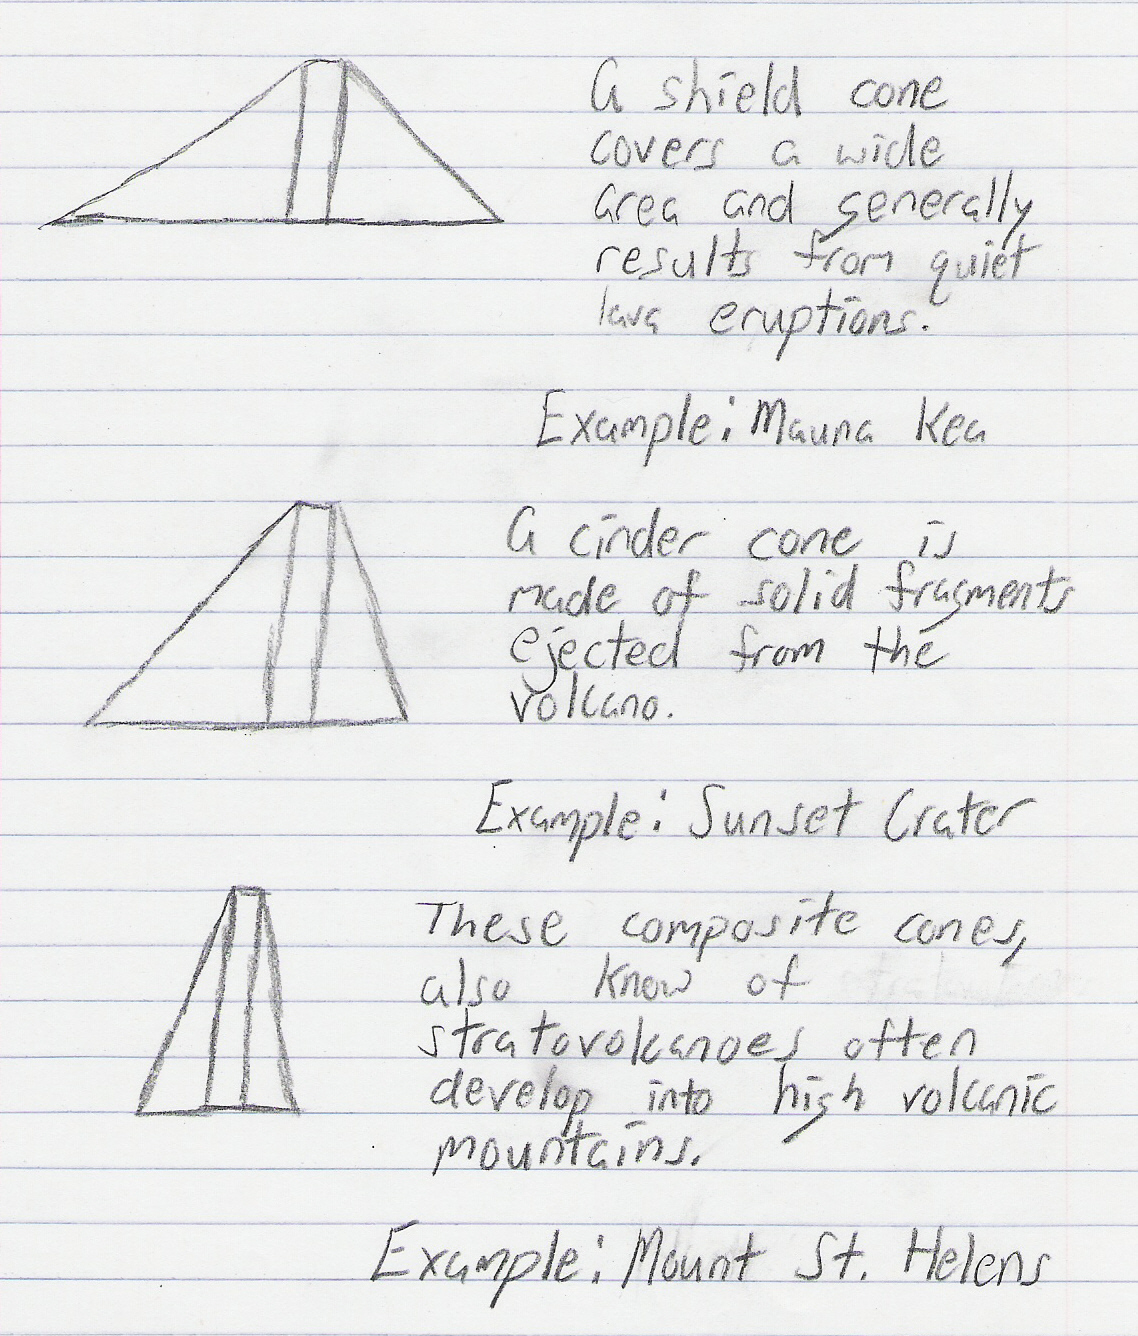 A shield cone
covers a wide
area and generally
results from quiet
lava eruptions.
Example: Mauna Kea
A cinder cone is
made of solid fragments
ejected from the
volcano.
Example: Sunset Crater
These composite cones,
also know of
stratovolcanoes often
develop into high volcanic
mountains.
Example: Mount St. Helens